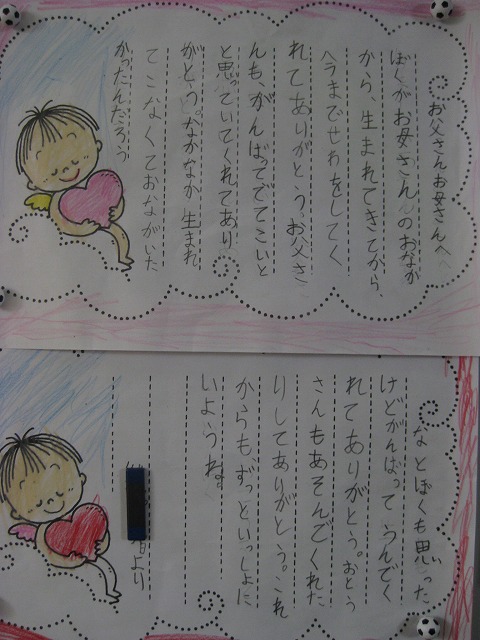 お父さんお母さんへ
ぼくがお母さんのおなか
から、生まれてきてから、
へうまでせわをしてく
れてありがとう。お父さ
んもがんばってでてこいと
と思っていてくれてあり
がとう。なかなか生まれ
てこなくておながいた
かったんだろう
なとぼくも思った
けどがんばってうんでく
れてありがとう。おとう
さんもあそんでくれた
りしてありがとう。これ
からも、ずっといっしょに
いようね。
より